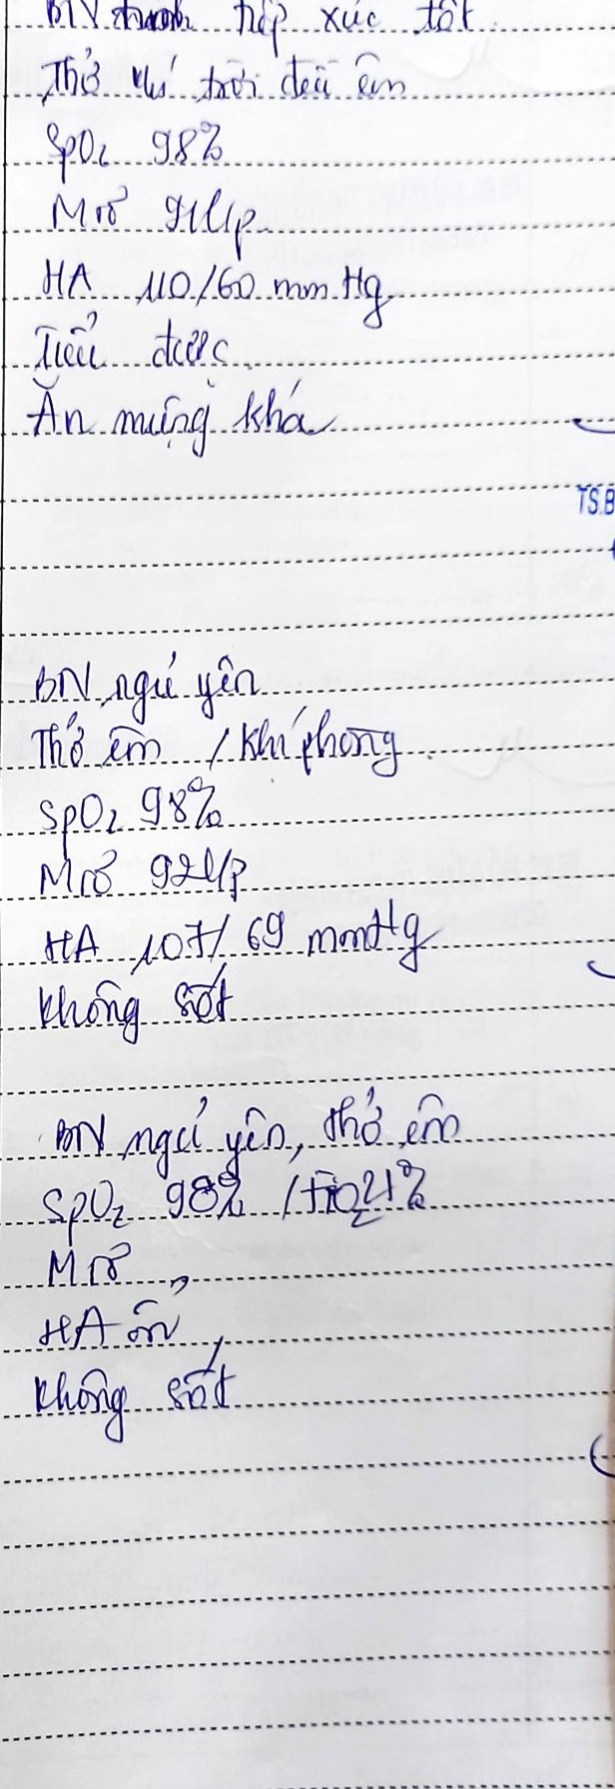 BN tiếp xúc tốt
Thở khí trời đều êm
SpO2 98%
Mạch l/p
HA 110/60 mmHg
Tiểu được
Ăn uống khá
TS.B
BN ngủ yên
Thở êm / khí phòng
SpO2 98%
Mạch 92 l/p
HA 107/69 mmHg
Không sốt
BN ngủ yên, thở êm
SpO2 98% / FiO2 21%
Mạch,
HA ổn
Không sốt